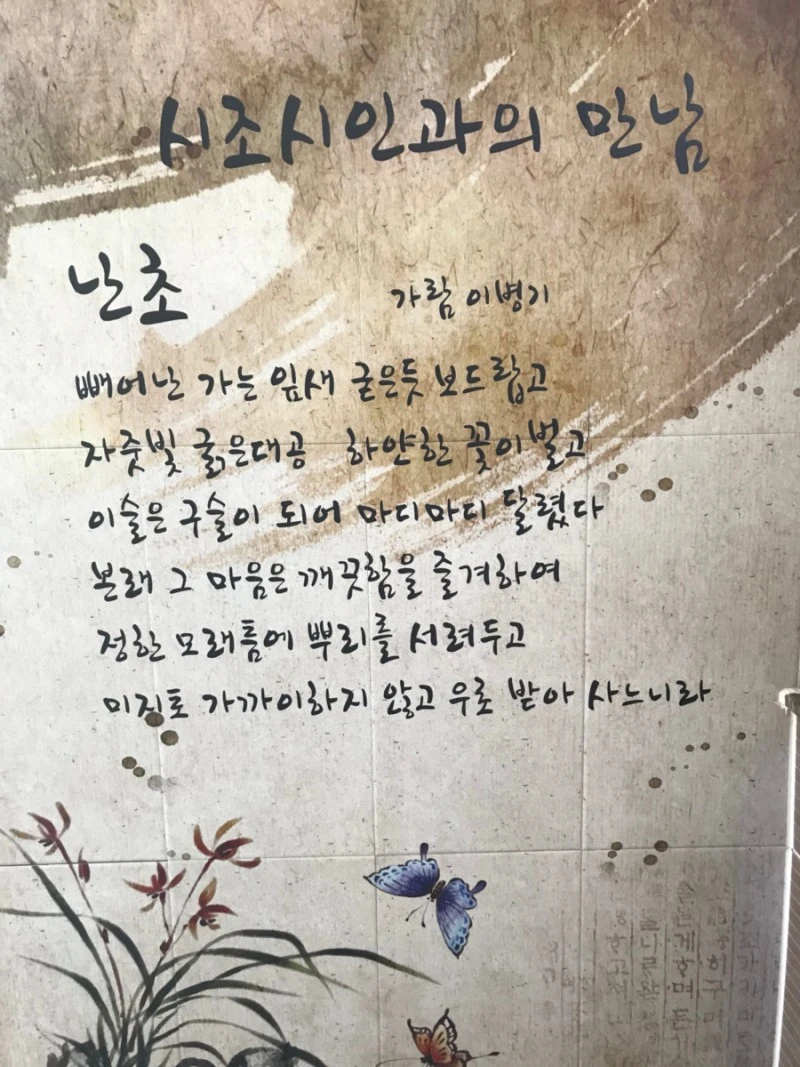 시조시인과의 만남
난초 가람 이병기
빼어난 가는 잎새 굳은듯 보드랍고
자줏빛 굵은대공 하얀한 꽃이벌고
이슬은 구슬이 되어 마디마디 달렸다
본래 그 마음은 깨끗함을 즐겨하여
정한 모래틈에 뿌리를 서려두고
미진도 가까이하지 않고 우로 받아 사느니라